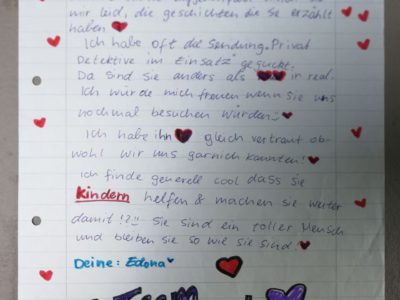 mir leid, die geschichten die Sie erzählt
haben
Ich habe oft die Sendung „Privat
Detektive im Einsatz" geguckt.
Da sind sie anders als in real.
Ich würde mich freuen wenn Sie uns
nochmal besuchen würden
Ich habe ihn gleich vertraut ob-
wohl wir uns garnich kannten!
Ich finde generell cool dass sie
kindern helfen & machen sie weiter
damit !?!! Sie sind ein toller Mensch
und bleiben sie so wie sie sind!
Deine: Edona
Team